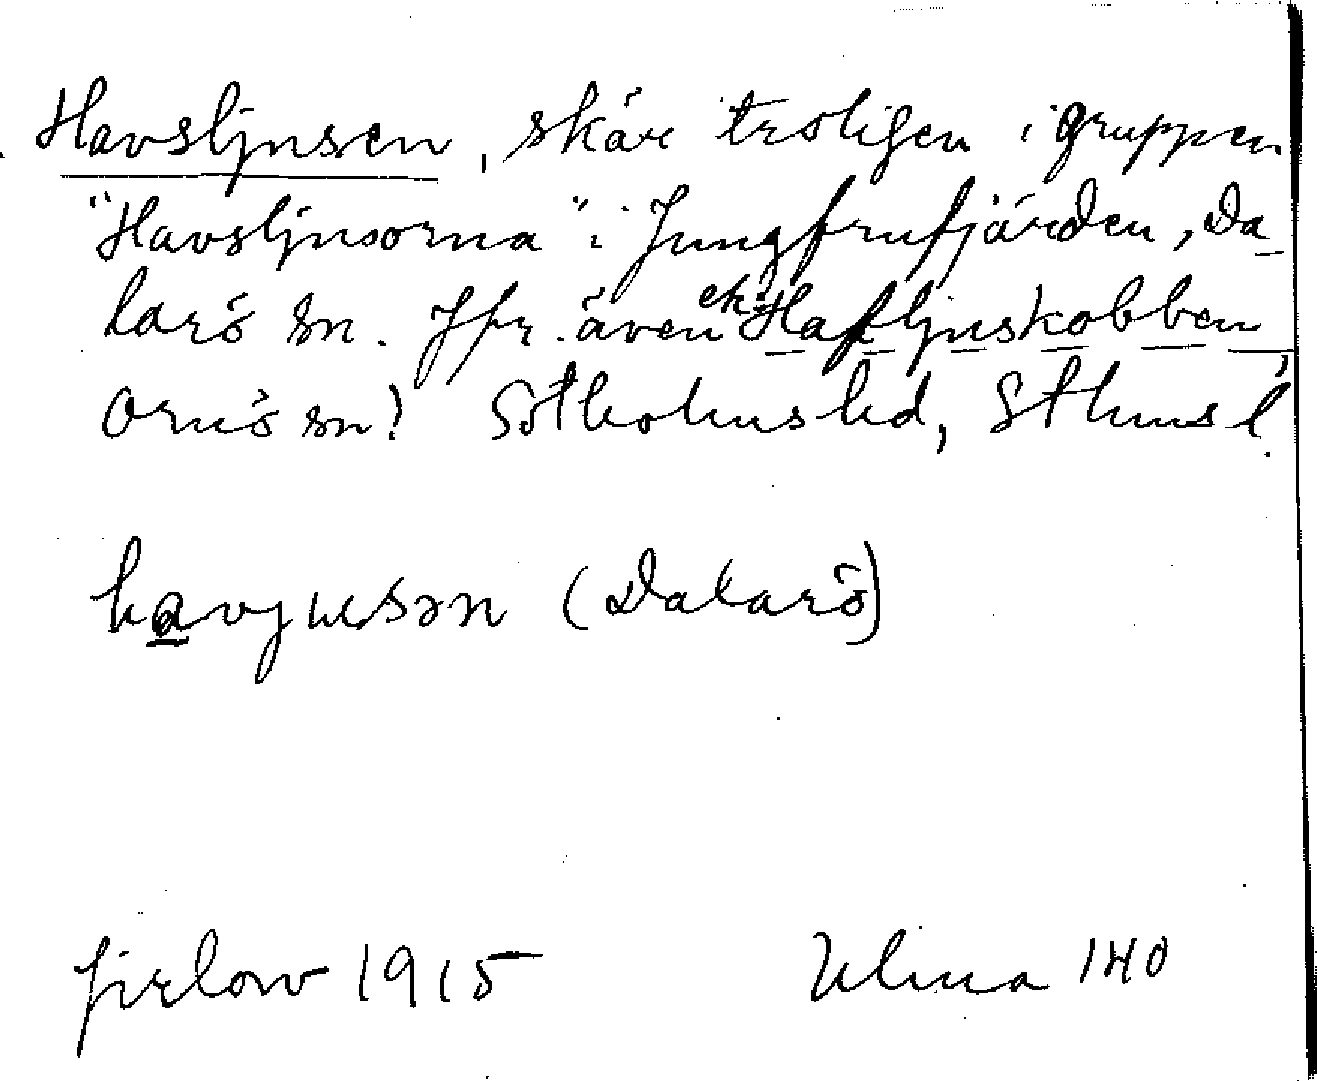 Havsljusen, skär troligen i gruppen
"Havsljusorna" i Jungfrufjärden, Da
larö sn. Jfr. även ek: Hafljuskobben
Ornö sn! Sotholms hd, Sthms l.
havjusən (Dalarö)
Jirlow 1915 Ulma 140